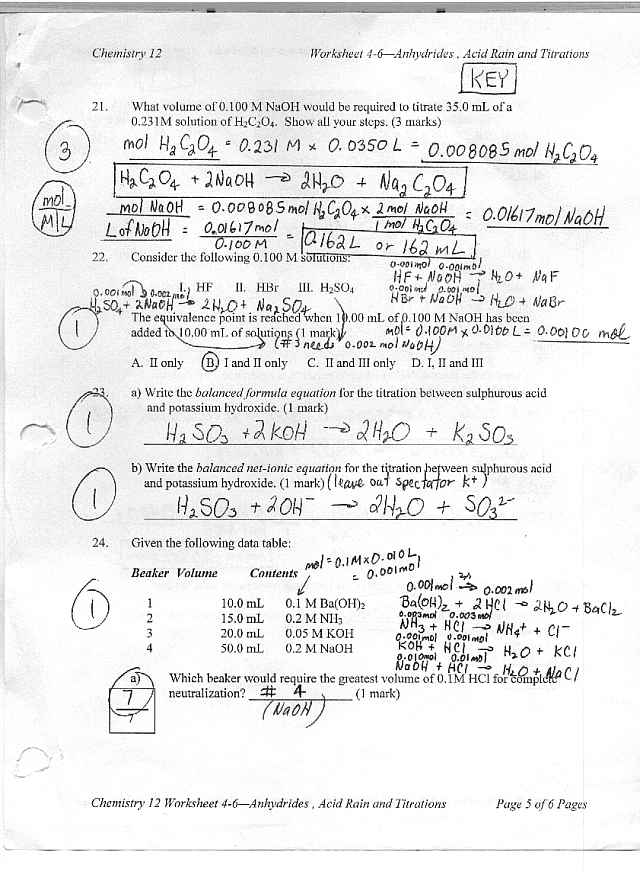 Chemistry 12 Worksheet 4-6—Anhydrides , Acid Rain and Titrations
KEY
21. What volume of 0.100 M NaOH would be required to titrate 35.0 mL of a
0.231M solution of H₂C₂O₄. Show all your steps. (3 marks)
3
mol H₂C₂O₄ = 0.231 M × 0.0350 L = 0.008085 mol H₂C₂O₄
H₂C₂O₄ + 2NaOH → 2H₂O + Na₂C₂O₄
mol
M L
mol NaOH = 0.008085 mol H₂C₂O₄ × 2 mol NaOH / 1 mol H₂C₂O₄ = 0.01617 mol NaOH
L of NaOH = 0.01617 mol / 0.100 M = 0.162 L or 162 mL
22. Consider the following 0.100 M solutions:
0.001 mol 0.001 mol
HF + NaOH → H₂O + NaF
0.001 mol → 0.002 mol
I. HF II. HBr III. H₂SO₄
0.001 mol 0.001 mol
HBr + NaOH → H₂O + NaBr
H₂SO₄ + 2NaOH → 2H₂O + Na₂SO₄
1
The equivalence point is reached when 10.00 mL of 0.100 M NaOH has been
added to 10.00 mL of solutions (1 mark)
mol = 0.100M × 0.0100 L = 0.00100 mol
(#3 needs 0.002 mol NaOH)
A. II only B. I and II only C. II and III only D. I, II and III
23. a) Write the balanced formula equation for the titration between sulphurous acid
and potassium hydroxide. (1 mark)
1
H₂SO₃ + 2KOH → 2H₂O + K₂SO₃
b) Write the balanced net-ionic equation for the titration between sulphurous acid
and potassium hydroxide. (1 mark) (leave out spectator K⁺)
1
H₂SO₃ + 2OH⁻ → 2H₂O + SO₃²⁻
24. Given the following data table:
mol = 0.1M × 0.010 L
= 0.001 mol
Beaker Volume Contents
0.001 mol ×2→ 0.002 mol
1 10.0 mL 0.1 M Ba(OH)₂
Ba(OH)₂ + 2HCl → 2H₂O + BaCl₂
0.003 mol 0.003 mol
2 15.0 mL 0.2 M NH₃
NH₃ + HCl → NH₄⁺ + Cl⁻
0.001 mol 0.001 mol
3 20.0 mL 0.05 M KOH
KOH + HCl → H₂O + KCl
0.010 mol 0.01 mol
4 50.0 mL 0.2 M NaOH
NaOH + HCl → H₂O + NaCl
1
a) Which beaker would require the greatest volume of 0.1M HCl for complete
neutralization? # 4 (1 mark)
(NaOH)
7
7
Chemistry 12 Worksheet 4-6—Anhydrides , Acid Rain and Titrations Page 5 of 6 Pages